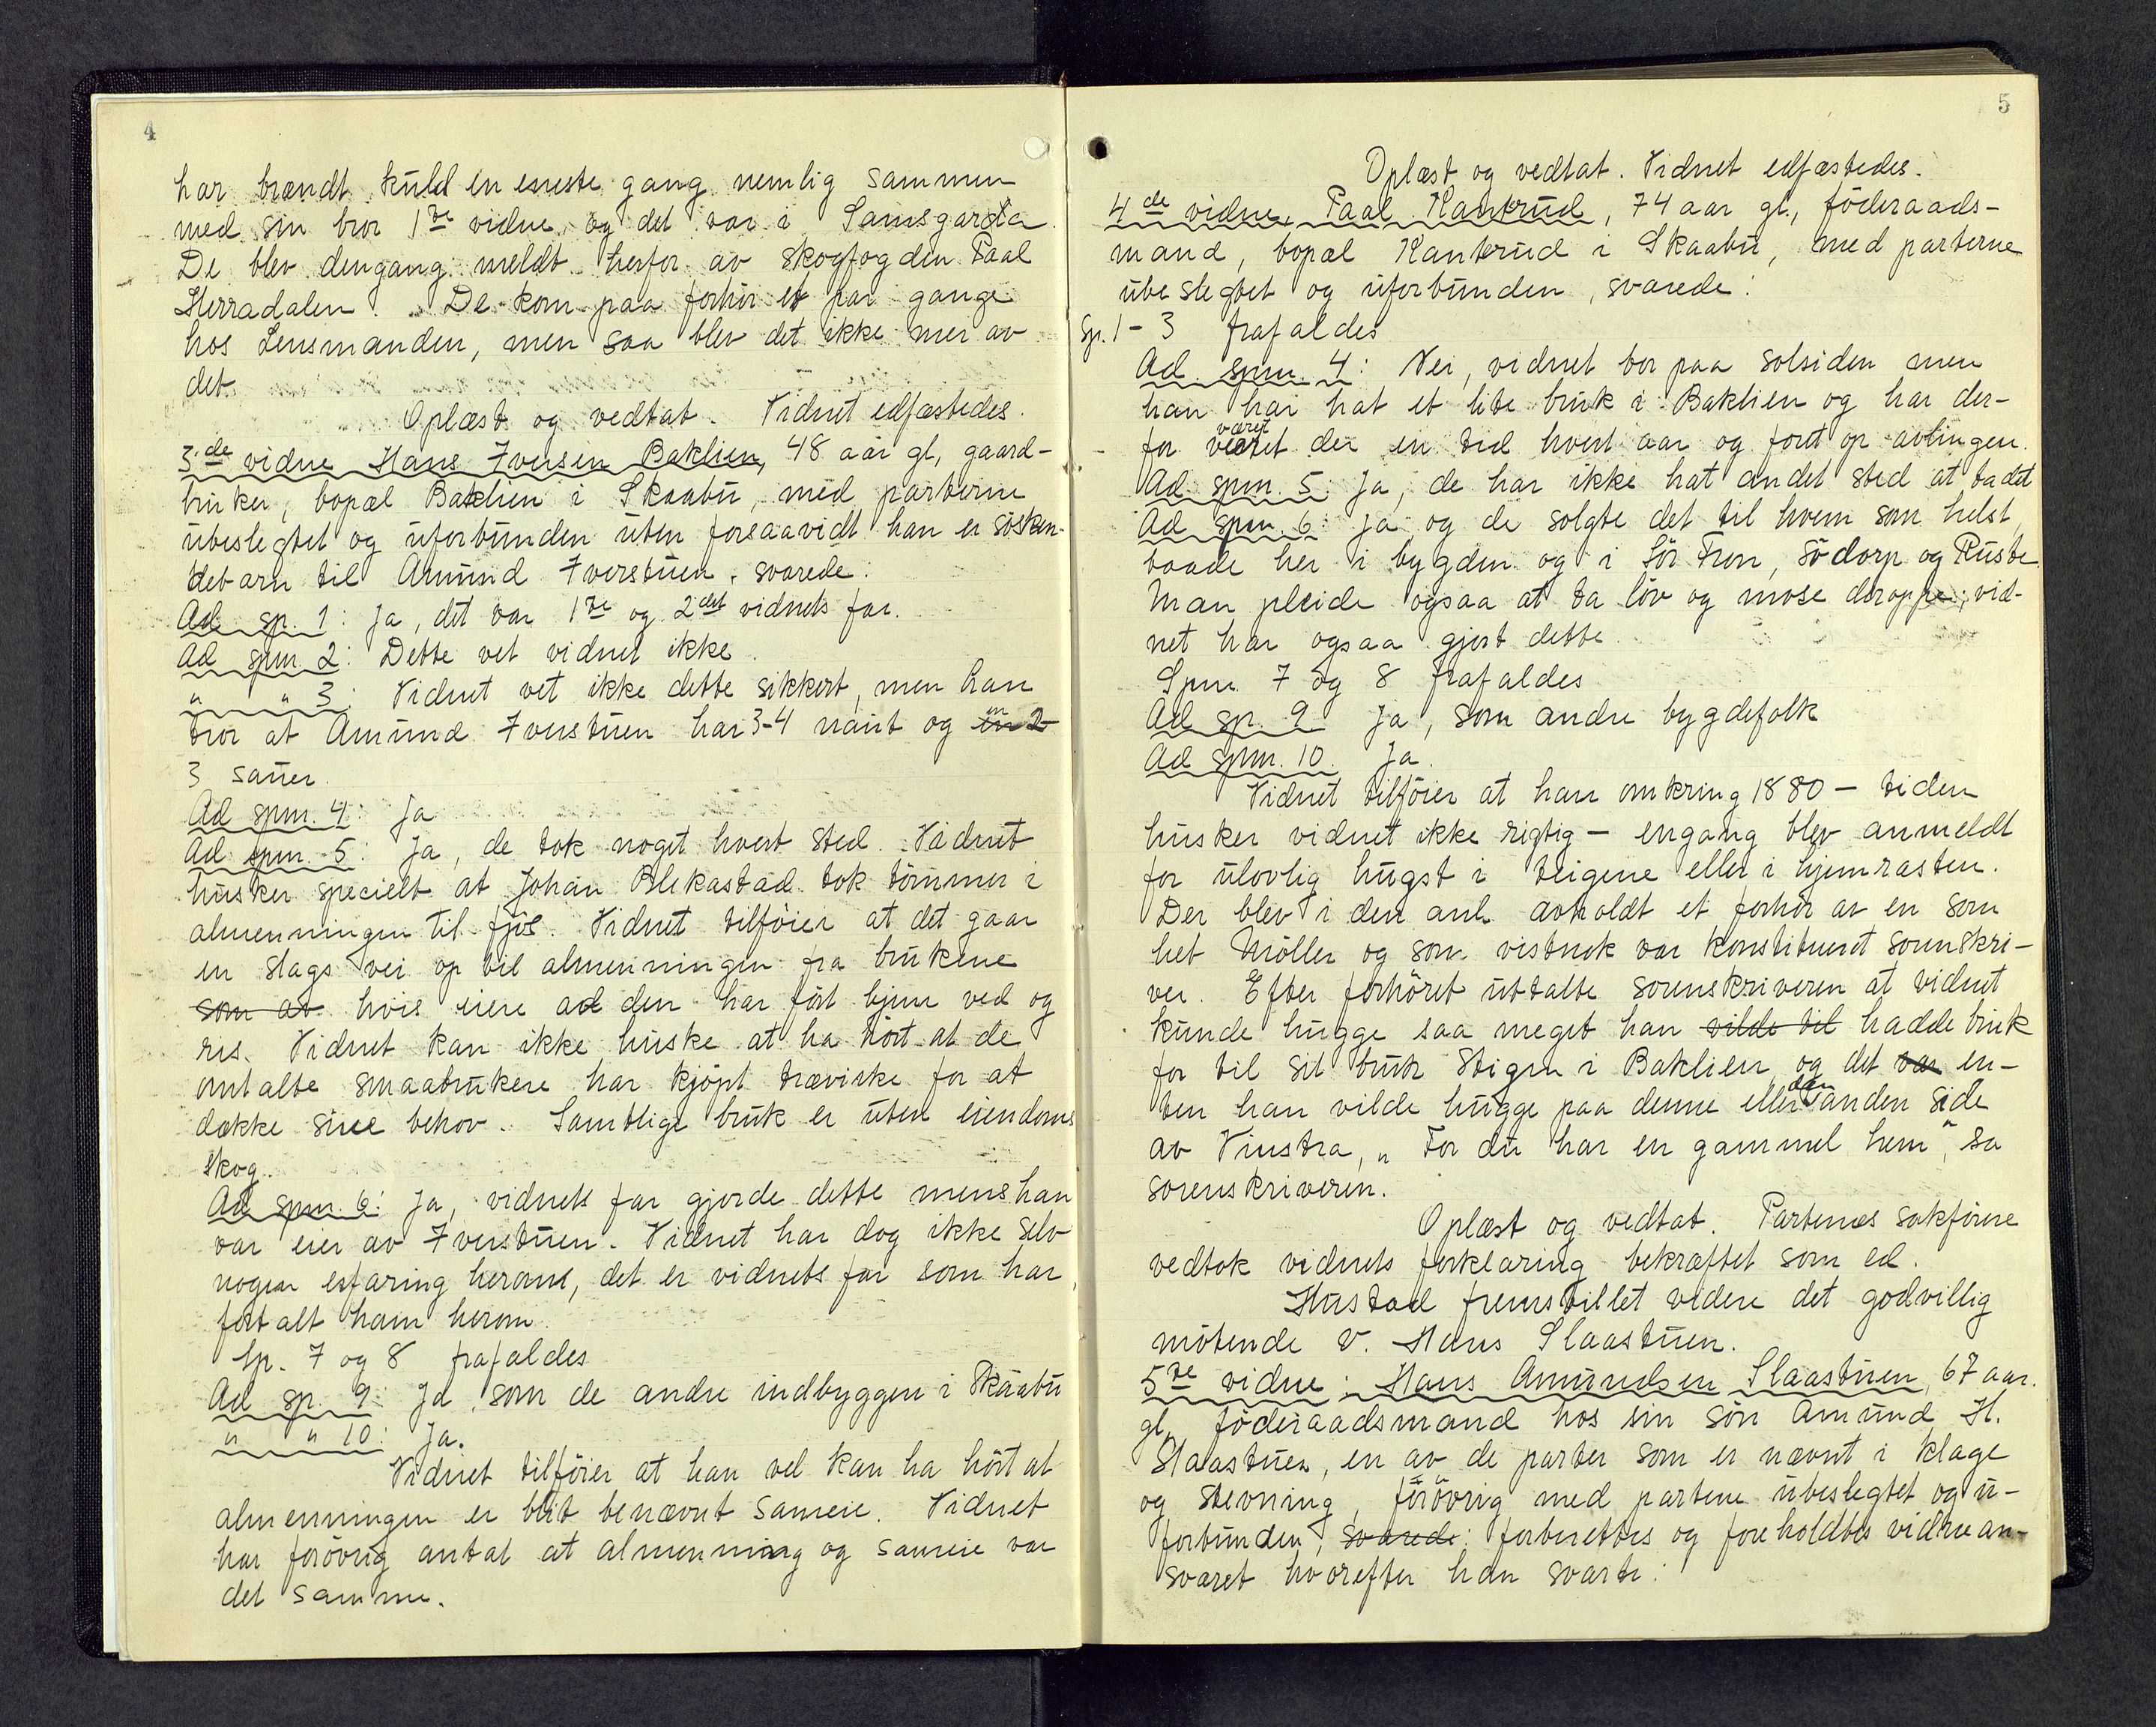 4
har brændt kuld en eneste gang nemlig sammen
med sin bror 1ste vidne og det var i Samsgardla
De blev dengang meldt herfor av skogfogden Paal
Herradalen. De kom paa forhör et par gange
hos Lensmanden, men saa blev det ikke mer av
det
Oplæst og vedtat. Vidnet edfæstedes.
3de vidne Hans Iversen Baklien, 48 aar gl, gaard-
bruker, bopæl Baklien i Skaabu, med parterne
ubeslegtet og uforbunden uten forsaavidt han er sösken-
debarn til Amund Iverstuen, svarede:
Ad sp. 1: Ja, det var 1ste og 2det vidnets far.
Ad spm. 2: Dette vet vidnet ikke.
" " 3: Vidnet vet ikke dette sikkert, men han
tror at Amund Iverstuen har 3-4 naut og en 2
3 sauer.
Ad spm. 4: Ja
Ad spm. 5: Ja, de tok noget hvert sted. Vidnet
husker specielt at Johan Blekastad tok tömmer i
almenningen til fjös. Vidnet tilföier at det gaar
en slags vei op til almenningen fra brukene
som av hvis eiere ad den har fört hjem ved og
ris. Vidnet kan ikke huske at ha hört at de
omtalte smaabrukere har kjöpt trævirke for at
dække sine behov. Samtlige bruk er uten eiendoms
skog.
Ad spm. 6: Ja, vidnets far gjorde dette mens han
var eier av Iverstuen. Vidnet har dog ikke selv
nogen erfaring herom, det er vidnets far som har
fortalt ham herom.
Sp. 7 og 8 frafaldes
Ad sp. 9: Ja, som de andre indbyggere i Skaabu
" " 10: Ja.
Vidnet tilföier at han vel kan ha hört at
almenningen er blit benævnt sameie. Vidnet
har forövrig antat at almenning og sameie var
det samme.
5
Oplæst og vedtat. Vidnet edfæstedes.
4de vidne, Paal Kankrud, 74 aar gl., föderaads-
mand, bopæl Kankrud i Skaabu, med parterne
ubeslegtet og uforbunden, svarede:
Sp. 1-3 frafaldes
Ad. spm. 4: Nei, vidnet bor paa solsiden men
han har hat et lite bruk i Baklien og har der-
været
for været der en tid hvert aar og foret op avlingen.
Ad spm. 5: Ja, de har ikke hat andet sted at ta det
Ad spm. 6: Ja og de solgte det til hvem som helst,
baade her i bygden og i Sör Fron, Södorp og Ruste
Man pleide ogsaa at ta löv og mose deroppe; vid-
net har ogsaa gjort dette.
Spm. 7 og 8 frafaldes
Ad sp. 9 Ja, som andre bygdefolk
Ad spm. 10. Ja.
Vidnet tilföier at han omkring 1880 – tiden
husker vidnet ikke rigtig – engang blev anmeldt
for ulovlig hugst i teigene eller i hjemrasten.
Der blev i den anl. avholdt et forhör av en som
het Möller og som vistnok var konstitueret sorenskri-
ver. Efter forhöret uttalte sorenskriveren at vidnet
kunde hugge saa meget han vilde til hadde bruk
for til sit bruk Stigen i Baklien og det var en-
den
ten han vilde hugge paa denne eller anden side
av Vinstra, „For du har en gammel hem", sa
sorenskriveren.
Oplæst og vedtat. Partenes sakförere
vedtok vidnets forklaring bekræftet som ed.
Hustad fremstillet videre det godvillig
mötende v. Hans Slaastuen.
5te vidne: Hans Amundsen Slaastuen, 67 aar.
gl, föderaadsmand hos sin sön Amund H.
Slaastuen, en av de parter som er nævnt i klage
og stevning, forövrig med partene ubeslegtet og u-
forbunden, svarede: forberettes og foreholdtes vidnean-
svaret hvorefter han svarte: